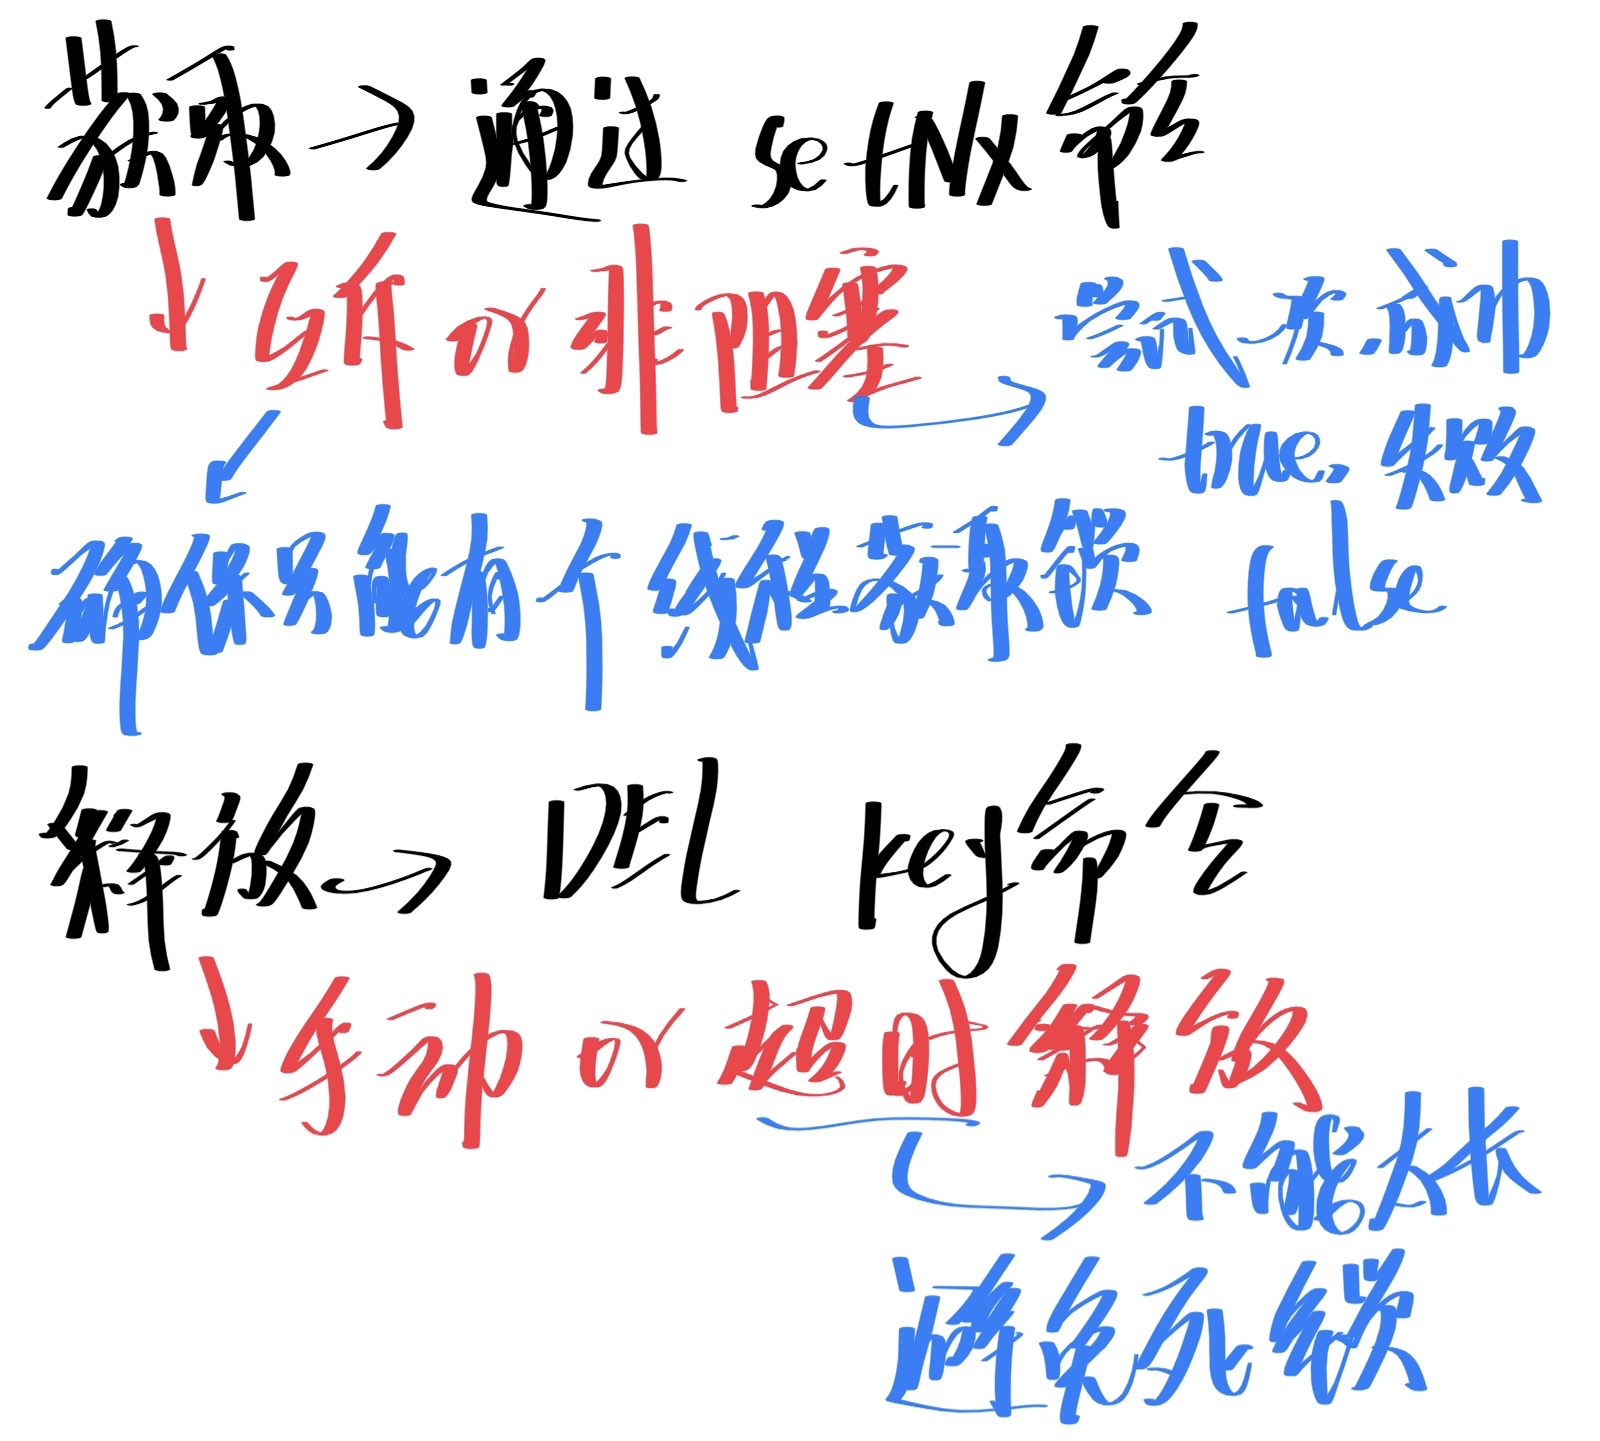 获取→通过 setNX命令
互斥 or 非阻塞
尝试一次,成功
true,失败
false
确保只能有个线程获取锁
释放→ DEL key命令
手动 or 超时释放
不能太长
避免死锁